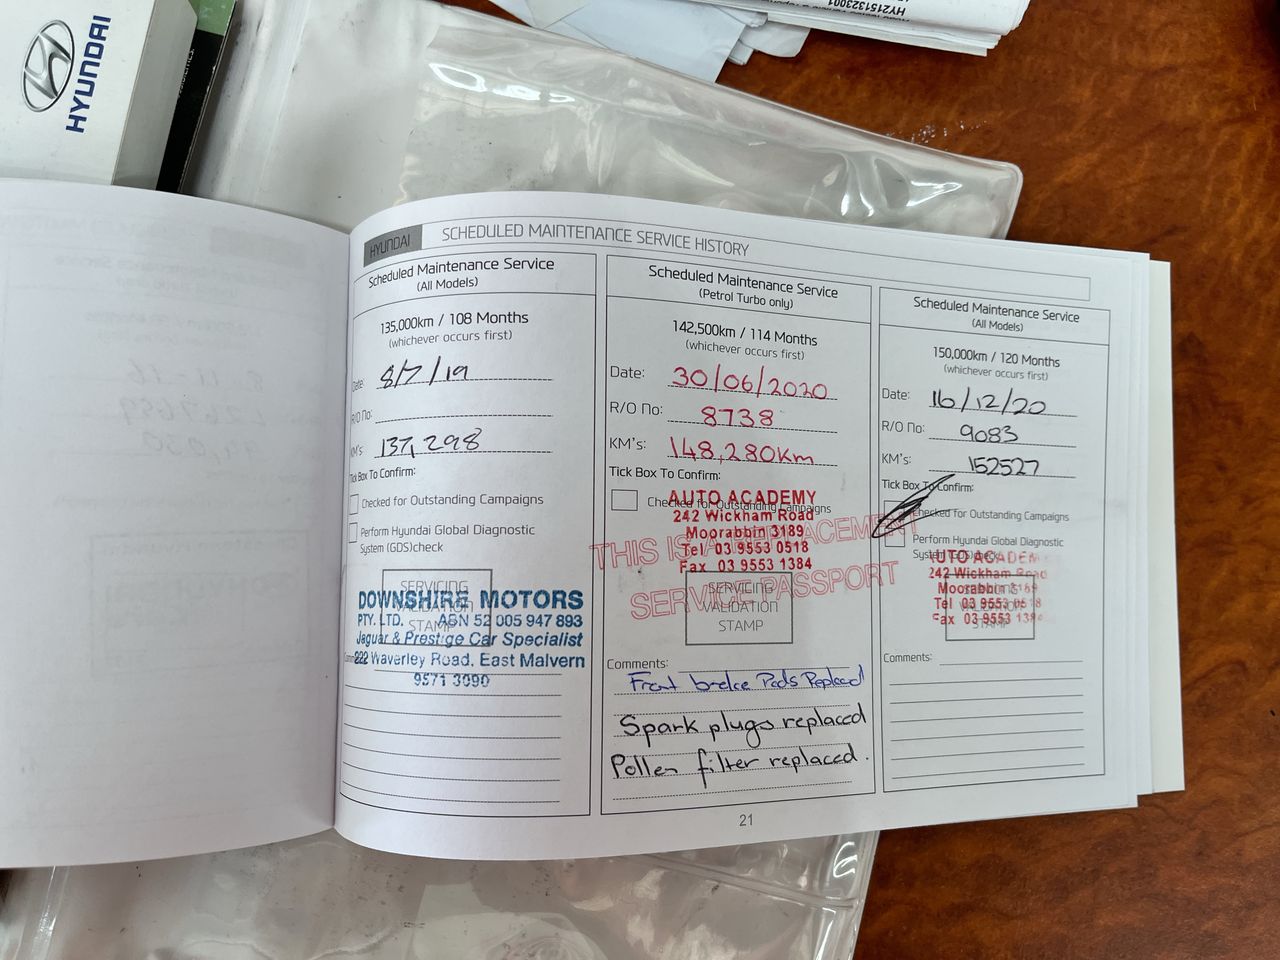 HYUNDAI
HY2151323001
HYUNDAI
SCHEDULED MAINTENANCE SERVICE HISTORY
Scheduled Maintenance Service
(All Models)
135,000km / 108 Months
(whichever occurs first)
Date: 8/7/19
R/O No:
KM's: 137,298
Tick Box To Confirm:
Checked for Outstanding Campaigns
Perform Hyundai Global Diagnostic
System (GDS)check
SERVICING
VALIDATION
STAMP
DOWNSHIRE MOTORS
PTY. LTD. ABN 52 005 947 893
Jaguar & Prestige Car Specialist
222 Waverley Road, East Malvern
9571 3090
Scheduled Maintenance Service
(Petrol Turbo only)
142,500km / 114 Months
(whichever occurs first)
Date: 30/06/2020
R/O No: 8738
KM's: 148,280Km
Tick Box To Confirm:
Checked for Outstanding Campaigns
AUTO ACADEMY
242 Wickham Road
Moorabbin 3189
Tel 03 9553 0518
Fax 03 9553 1384
THIS IS A REPLACEMENT
SERVICE PASSPORT
SERVICING
VALIDATION
STAMP
Comments:
Front brake Pads Replaced
Spark plugs replaced
Pollen filter replaced.
Scheduled Maintenance Service
(All Models)
150,000km / 120 Months
(whichever occurs first)
Date: 16/12/20
R/O No: 9083
KM's: 152527
Tick Box To Confirm:
Checked for Outstanding Campaigns
Perform Hyundai Global Diagnostic
System (GDS)check
AUTO ACADEM
242 Wickham Road
Moorabbin 3189
Tel 03 9553 0518
Fax 03 9553 1384
STAMP
Comments:
21